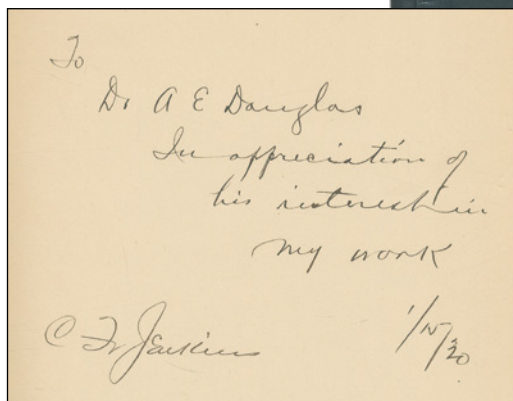 To
Dr A E Douglas
In appreciation of
his interest in
my work
C Fr Jenkins
1/15/30